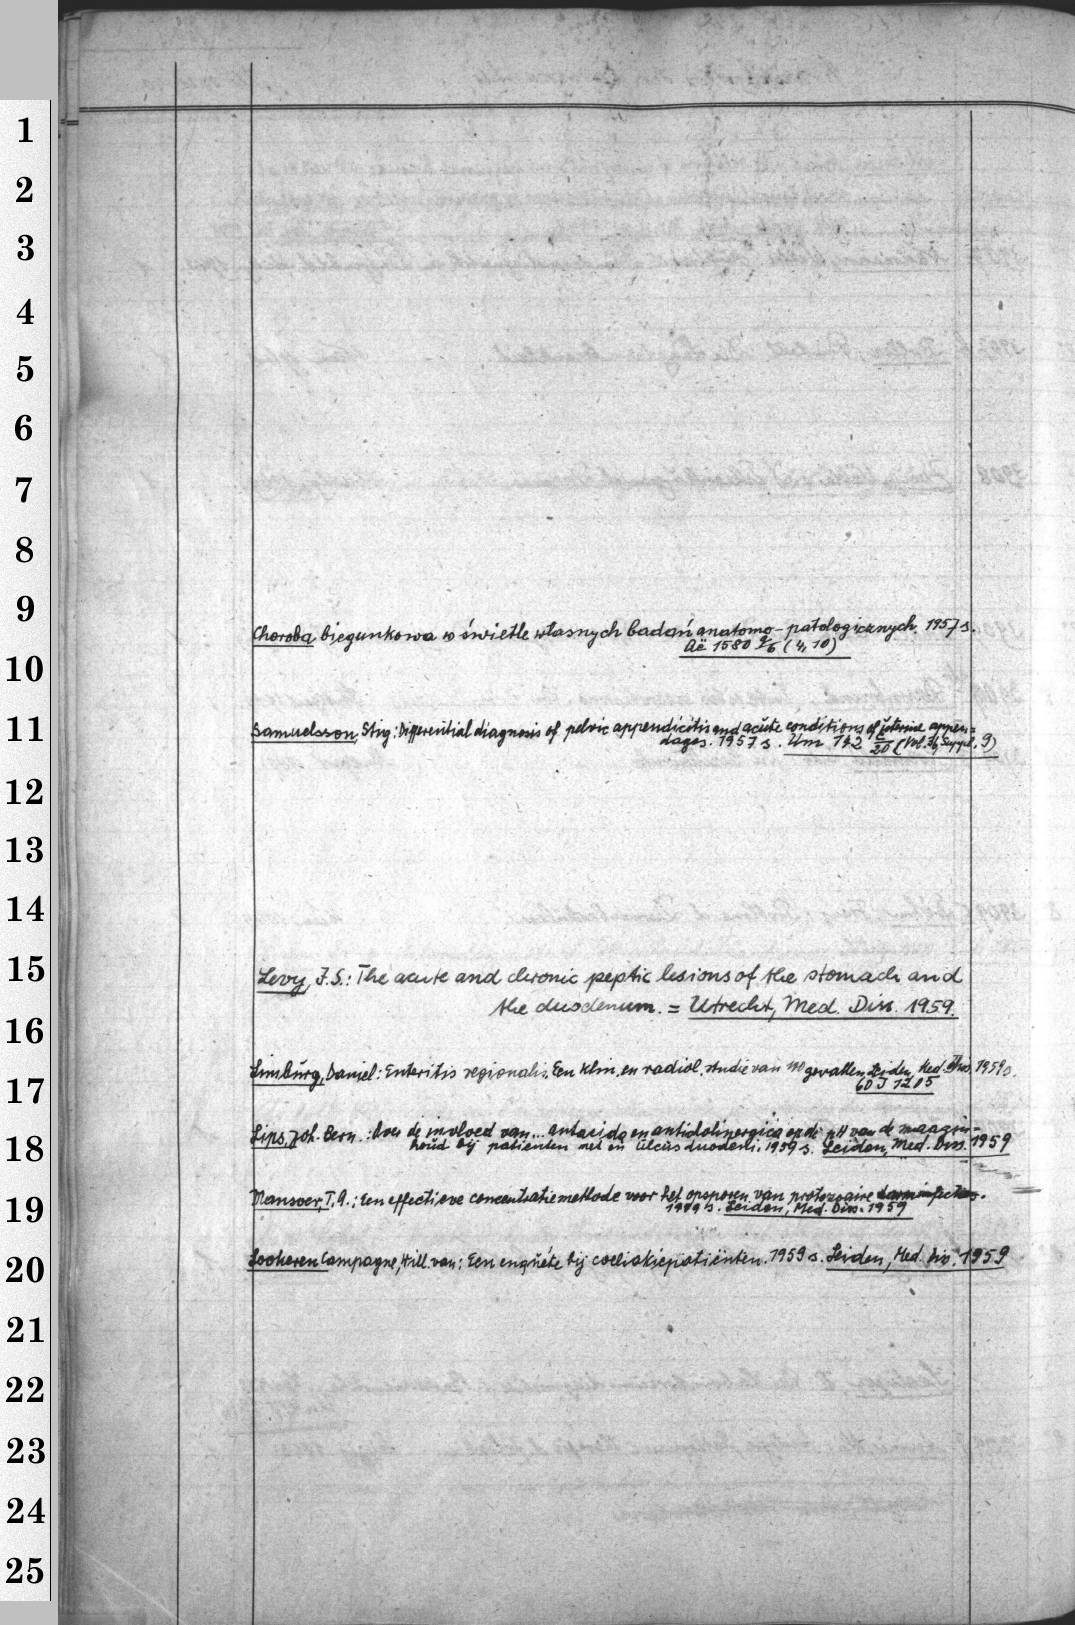 1
2
3
4
5
6
7
8
9
Choroba biegunkowa w świetle własnych badań anatomo-patologicznych. 1957 s.
Aë 1580 9/6 (4, 10)
10
11
Samuelsson, Stig: Differential diagnosis of pelvic appendicitis and acute conditions of uterine appen-
dages. 1957 s. Um 742 /20 (Vol. 26, Suppl. 9)
12
13
14
15
Levy, F.S.: The acute and chronic peptic lesions of the stomach and
the duodenum. = Utrecht, Med. Diss. 1959.
16
17
Limburg, Daniel: Enteritis regionalis. Een klin. en radiol. studie van 110 gevallen. Leiden, Med. Diss. 1959 s.
60 J 1205
18
Lips, Joh. Bern.: Over de invloed van... antacida en anticholinergica op de pH van de maagin-
houd bij patienten met en ulcus duodeni. 1959 s. Leiden, Med. Diss. 1959
19
Mansoer, T.A.: Een effectieve concentratiemethode voor het opsporen van protozoaire darminfecties.
1959 s. Leiden, Med. Diss. 1959
20
Lookeren Campagne, Will. van: Een enquête bij coeliakiepatiënten. 1959 s. Leiden, Med. Dis. 1959
21
22
23
24
25